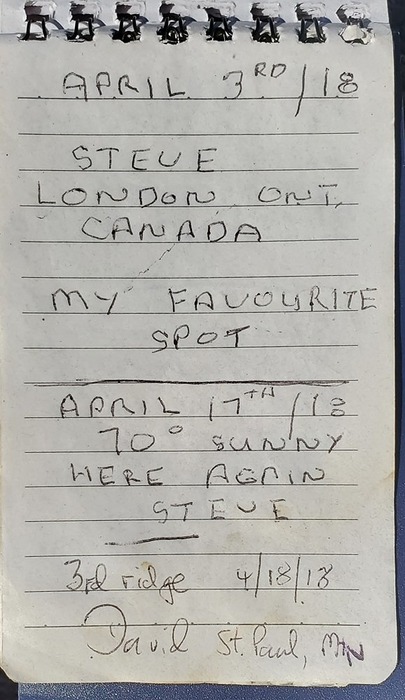 APRIL 3RD/18
STEVE
LONDON ONT.
CANADA
MY FAVOURITE
SPOT
APRIL 17TH/18
70° SUNNY
HERE AGAIN
STEVE
3rd ridge 4/18/18
David St. Paul, MN